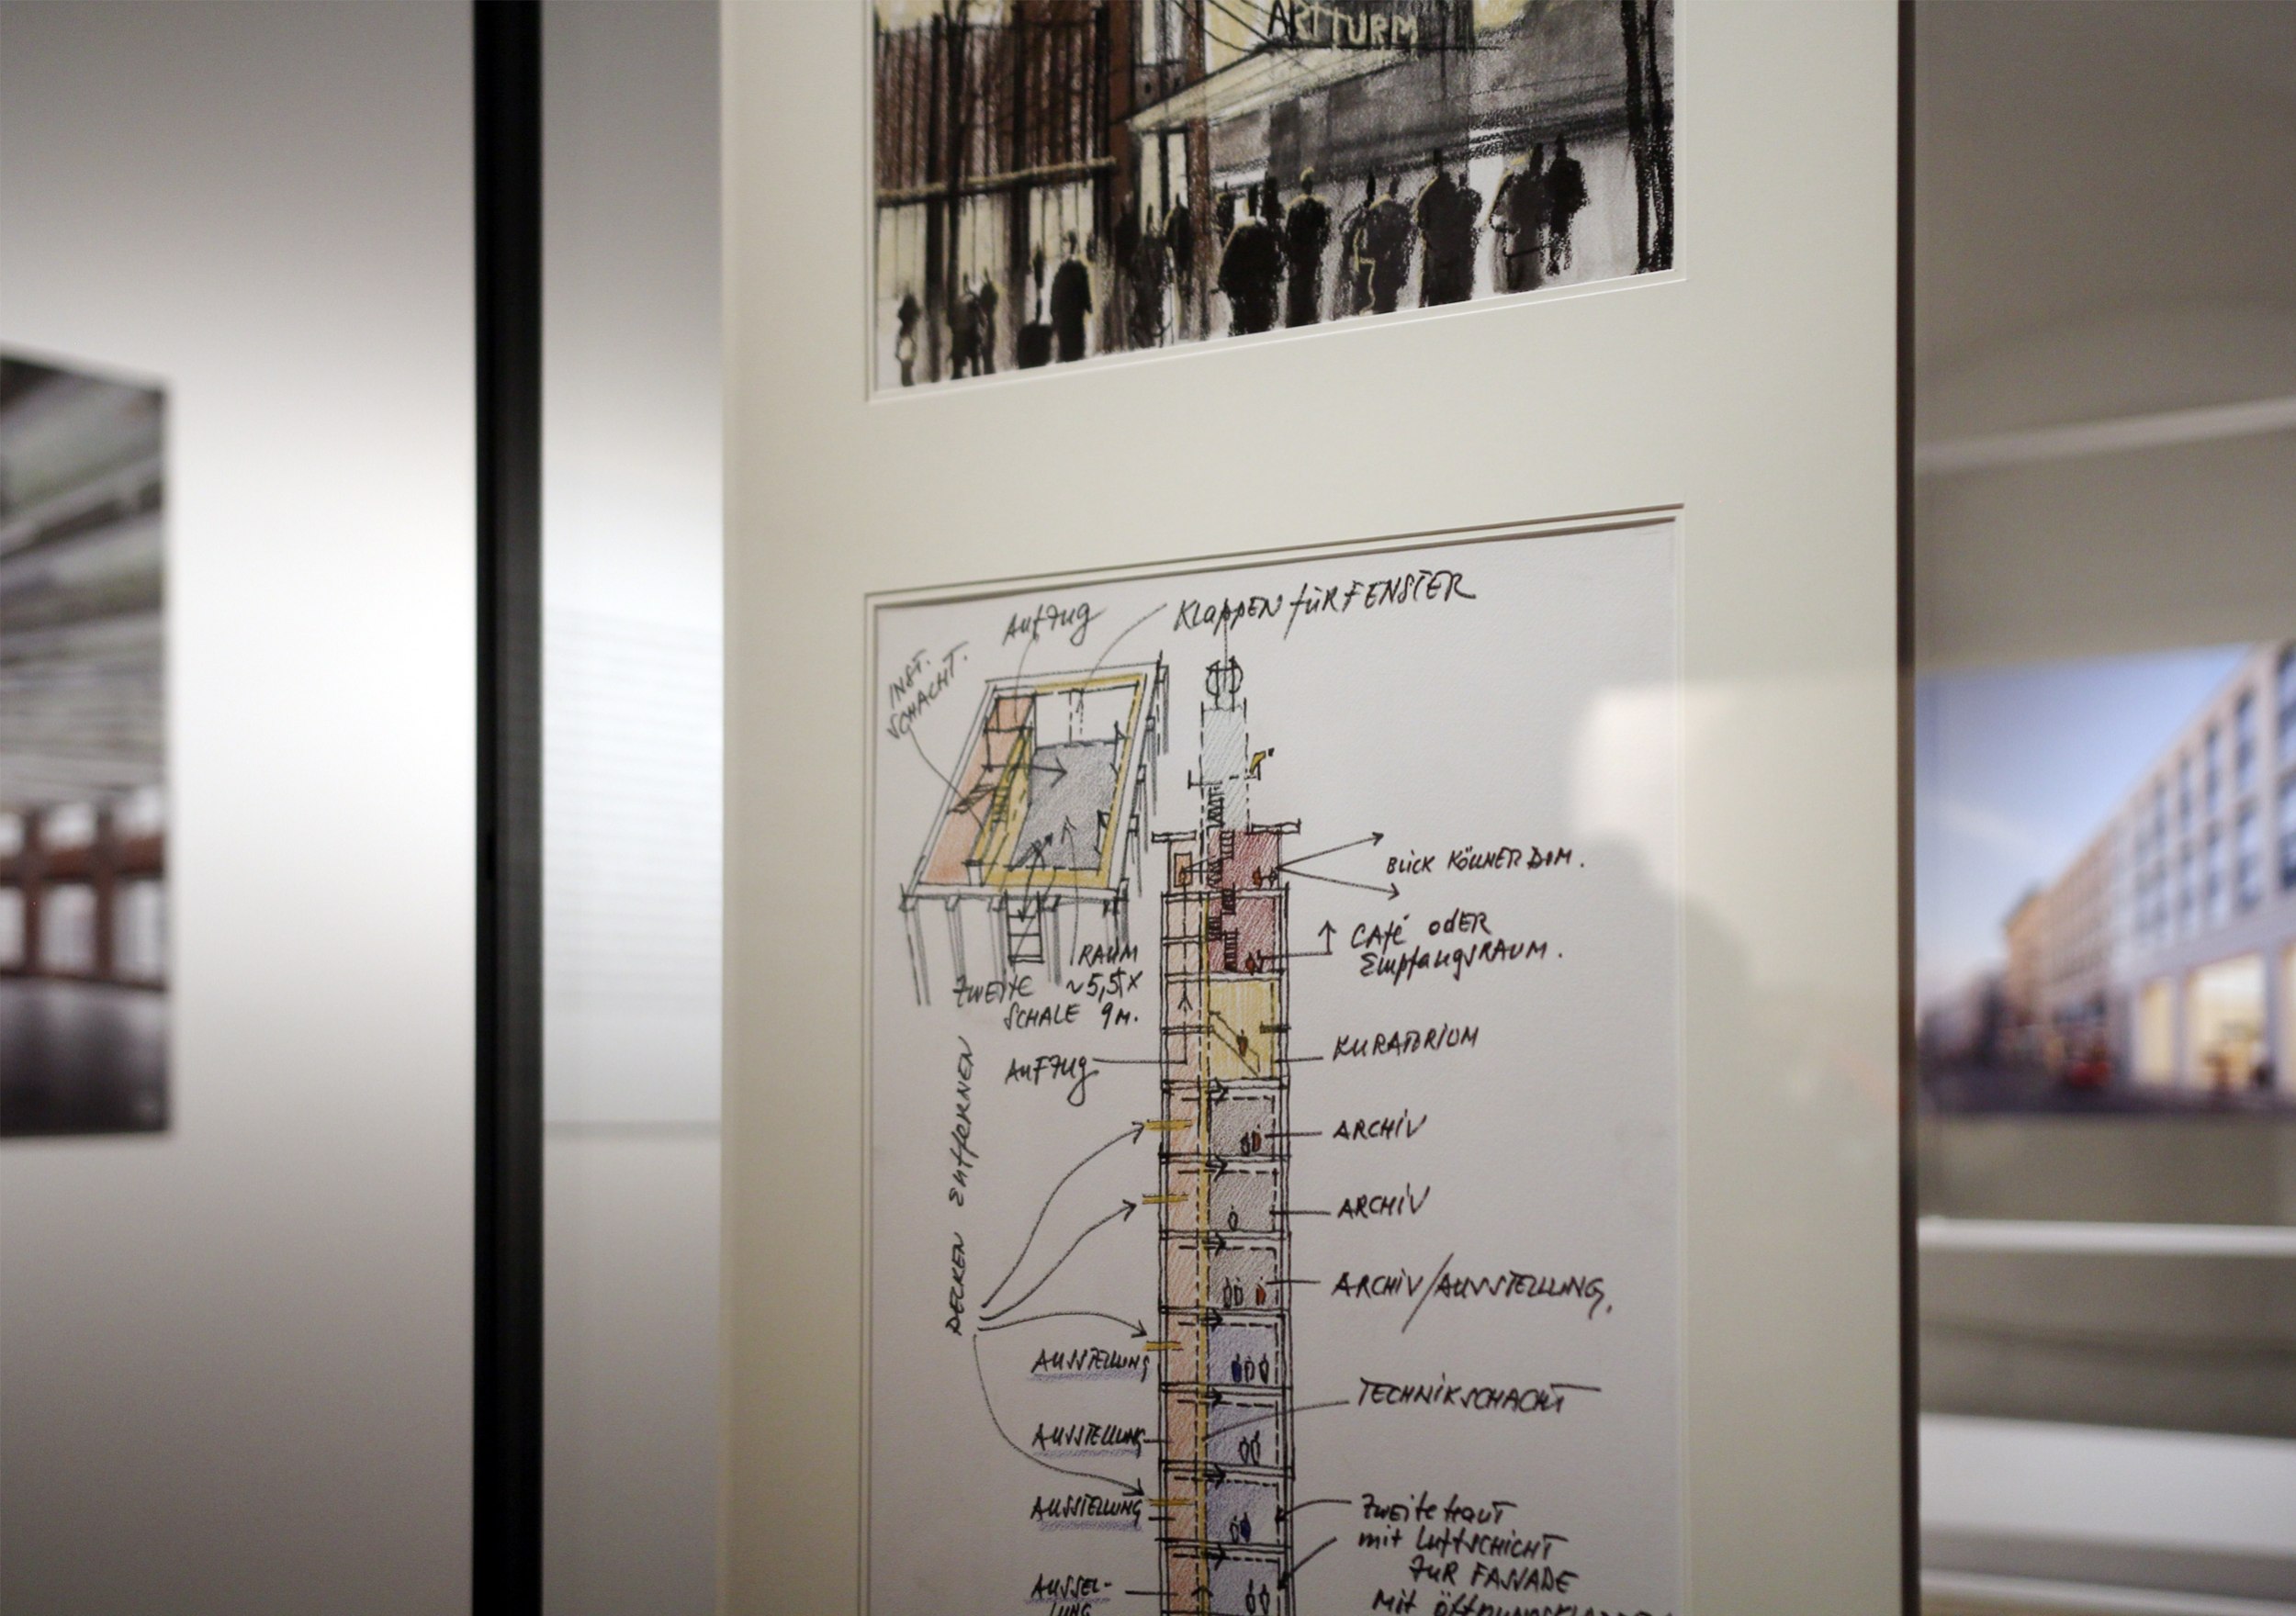 ARTTURM
Aufzug
Klappen für FENSTER
INST.
SCHACHT.
BLICK KÖLNER DOM.
CAfé odER
EmpfangsRAUM.
RAUM
~5,5 x
9 M.
ZWEITE
SCHALE
KURATORIUM
AufZug
DECKEN Entfernen
ARCHiV
ARCHiV
ARCHiV/AUSSTELLUNG.
AUSSTELLUNG
TECHNIKSCHACHT
AUSSTELLUNG
AUSSTELLUNG
Zweite Haut
mit Luftschicht
ZUR FASSADE
Mit öffnungsklappen
AUSSEL-
LUNG